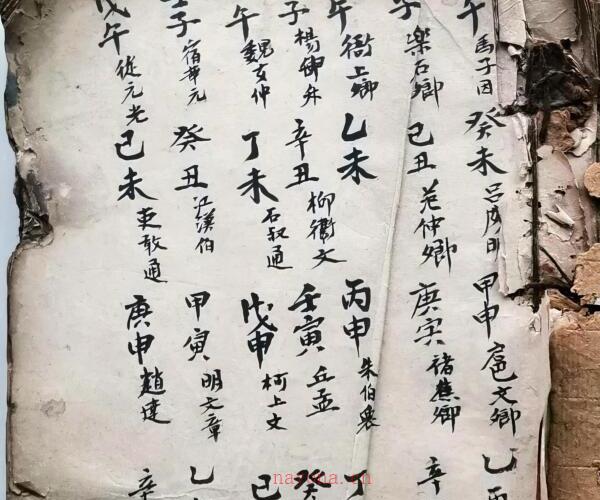 午 馬子因 癸未 呂彦明 甲申 扈文卿 乙
子 樂石卿 己丑 范仲卿 庚寅 諸舊卿 辛
午 衛上卿 乙未 柳衛文 丙申 朱伯眾 丁
子 楊仰弁 辛丑 壬寅 丘孟 癸
午 魏玄仲 丁未 石叔通 戊申 柯上文 己
子 宿市元 癸丑 江漢伯 甲寅 明文章 乙
戊午 從元光 己未 吏敢通 庚申 趙達 辛